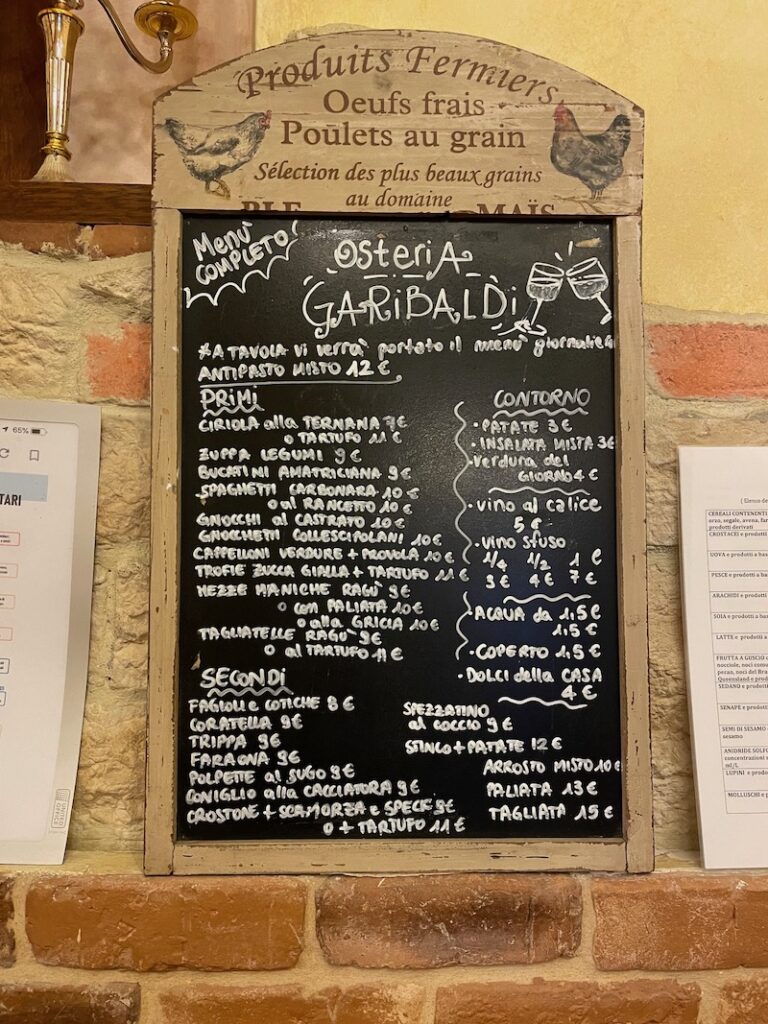 Produits Fermiers
Oeufs frais
Poulets au grain
Sélection des plus beaux grains
au domaine
BLE MAÏS
Menù
COMPLETO!
OSTERIA
GARIBALDI
*A TAVOLA vi verrà portato il menù giornaliero
ANTIPASTO MISTO 12 €
PRIMI
CIRIOLA alla TERNANA 7€
o TARTUFO 11 €
ZUPPA LEGUMI 9 €
BUCATINI AMATRICIANA 9€
SPAGHETTI CARBONARA 10 €
o al RANCETTO 10 €
GNOCCHI al CASTRATO 10 €
GNOCCHETTI COLLESCIPOLANI 10€
CAPPELLONI VERDURE + PROVOLA 10 €
TROFIE ZUCCA GIALLA + TARTUFO 11 €
MEZZE MANICHE RAGÙ 9€
o con PALIATA 10€
o alla GRICIA 10€
TAGLIATELLE RAGÙ 9€
o al TARTUFO 11 €
CONTORNO
• PATATE 3 €
• INSALATA MISTA 3€
• Verdura del
GIORNO 4 €
• vino al calice
5 €
• vino sfuso
1/4 1/2 1 l
3€ 4€ 7€
• ACQUA da 1,5 l
1,5 €
• COPERTO 1,5 €
• Dolci della CASA
4 €
SECONDI
FAGIOLI e COTICHE 8 €
CORATELLA 9€
TRIPPA 9€
FARAONA 9€
POLPETTE al SUGO 9€
CONIGLIO alla CACCIATORA 9€
CROSTONE + SCAMORZA e SPECK 9€
o + TARTUFO 11 €
SPEZZATINO
al COCCIO 9€
STINCO + PATATE 12 €
ARROSTO MISTO 10€
PALIATA 13€
TAGLIATA 15 €
65%
TARI
UNITED
OFFICE
( Elenco de
CEREALI CONTENENTI
orzo, segale, avena, far
prodotti derivati
CROSTACEI e prodotti
UOVA e prodotti a bas
PESCE e prodotti a bas
ARACHIDI e prodotti
SOIA e prodotti a bas
LATTE e prodotti a
FRUTTA A GUSCIO c
nocciole, noci comu
pecan, noci del Bra
Queensland e prod
SEDANO e prodott
SENAPE e prodott
SEMI DI SESAMO
sesamo
ANIDRIDE SOLFO
concentrazioni s
ml/L
LUPINI e prodo
MOLLUSCHI e p